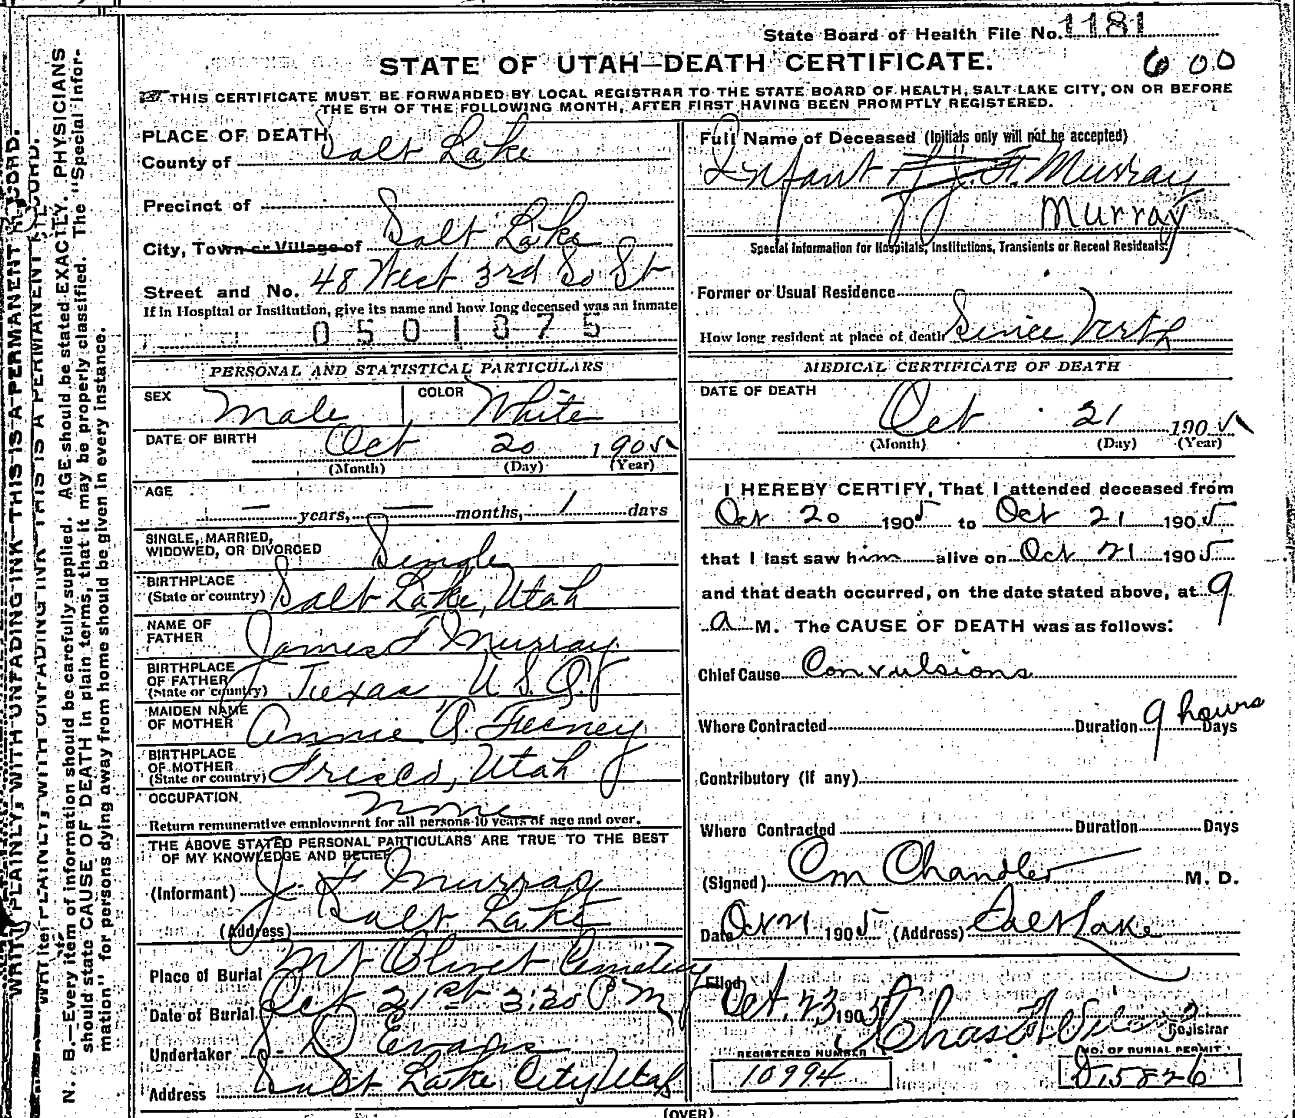 State Board of Health File No. 1181
STATE OF UTAH—DEATH CERTIFICATE.
600
THIS CERTIFICATE MUST BE FORWARDED BY LOCAL REGISTRAR TO THE STATE BOARD OF HEALTH, SALT LAKE CITY, ON OR BEFORE
THE 5TH OF THE FOLLOWING MONTH, AFTER FIRST HAVING BEEN PROMPTLY REGISTERED.
WRITE PLAINLY, WITH UNFADING INK—THIS IS A PERMANENT RECORD.
WRITE PLAINLY, WITH UNFADING INK—THIS IS A PERMANENT RECORD.
N. B.—Every item of information should be carefully supplied. AGE should be stated EXACTLY. PHYSICIANS
should state CAUSE OF DEATH in plain terms, that it may be properly classified. The "Special Infor-
mation" for persons dying away from home should be given in every instance.
PLACE OF DEATH
County of Salt Lake
Precinct of
City, Town or Village of Salt Lake
Street and No. 48 West 3rd So St
If in Hospital or Institution, give its name and how long deceased was an inmate
0501875
PERSONAL AND STATISTICAL PARTICULARS
SEX Male COLOR White
DATE OF BIRTH Oct 20 1905
(Month) (Day) (Year)
AGE
— years, — months, 1 days
SINGLE, MARRIED,
WIDOWED, OR DIVORCED Single
BIRTHPLACE
(State or country) Salt Lake, Utah
NAME OF
FATHER James F Murray
BIRTHPLACE
OF FATHER
(State or country) Texas U.S.A.
MAIDEN NAME
OF MOTHER Annie A. Feeney
BIRTHPLACE
OF MOTHER
(State or country) Frisco, Utah
OCCUPATION none
Return remunerative employment for all persons 10 years of age and over.
THE ABOVE STATED PERSONAL PARTICULARS ARE TRUE TO THE BEST
OF MY KNOWLEDGE AND BELIEF
(Informant) J. F. Murray
(Address) Salt Lake
Place of Burial Mt Olivet Cemetery
Date of Burial Oct 21st 3:20 P M
Undertaker S. D Evans
Address Salt Lake City, Utah
Full Name of Deceased (Initials only will not be accepted)
Infant J. F. Murray
Murray
Special Information for Hospitals, Institutions, Transients or Recent Residents.
Former or Usual Residence
How long resident at place of death Since birth
MEDICAL CERTIFICATE OF DEATH
DATE OF DEATH
Oct 21 1905
(Month) (Day) (Year)
I HEREBY CERTIFY, That I attended deceased from
Oct 20 1905 to Oct 21 1905
that I last saw him alive on Oct 21 1905
and that death occurred, on the date stated above, at 9
a M. The CAUSE OF DEATH was as follows:
Chief Cause Convulsions
Where Contracted Duration 9 hours Days
Contributory (If any)
Where Contracted Duration Days
(Signed) Om Chandler M. D.
Date Oct 21 1905 (Address) Salt Lake
Filed Oct. 23 1905 Chas
Registrar
REGISTERED NUMBER
10994
NO. OF BURIAL PERMIT
D15826
(OVER)